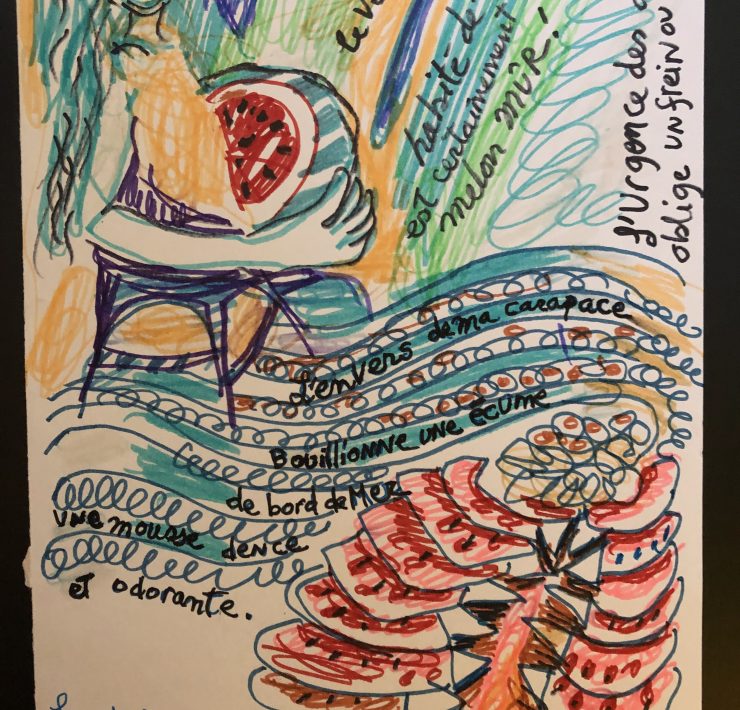 habité de
est certainement
melon mûr!
L'Urgence des
oblige un frein ou
l'envers de ma carapace
Bouillionne une écume
de bord de Mer
une mousse dence
et odorante.